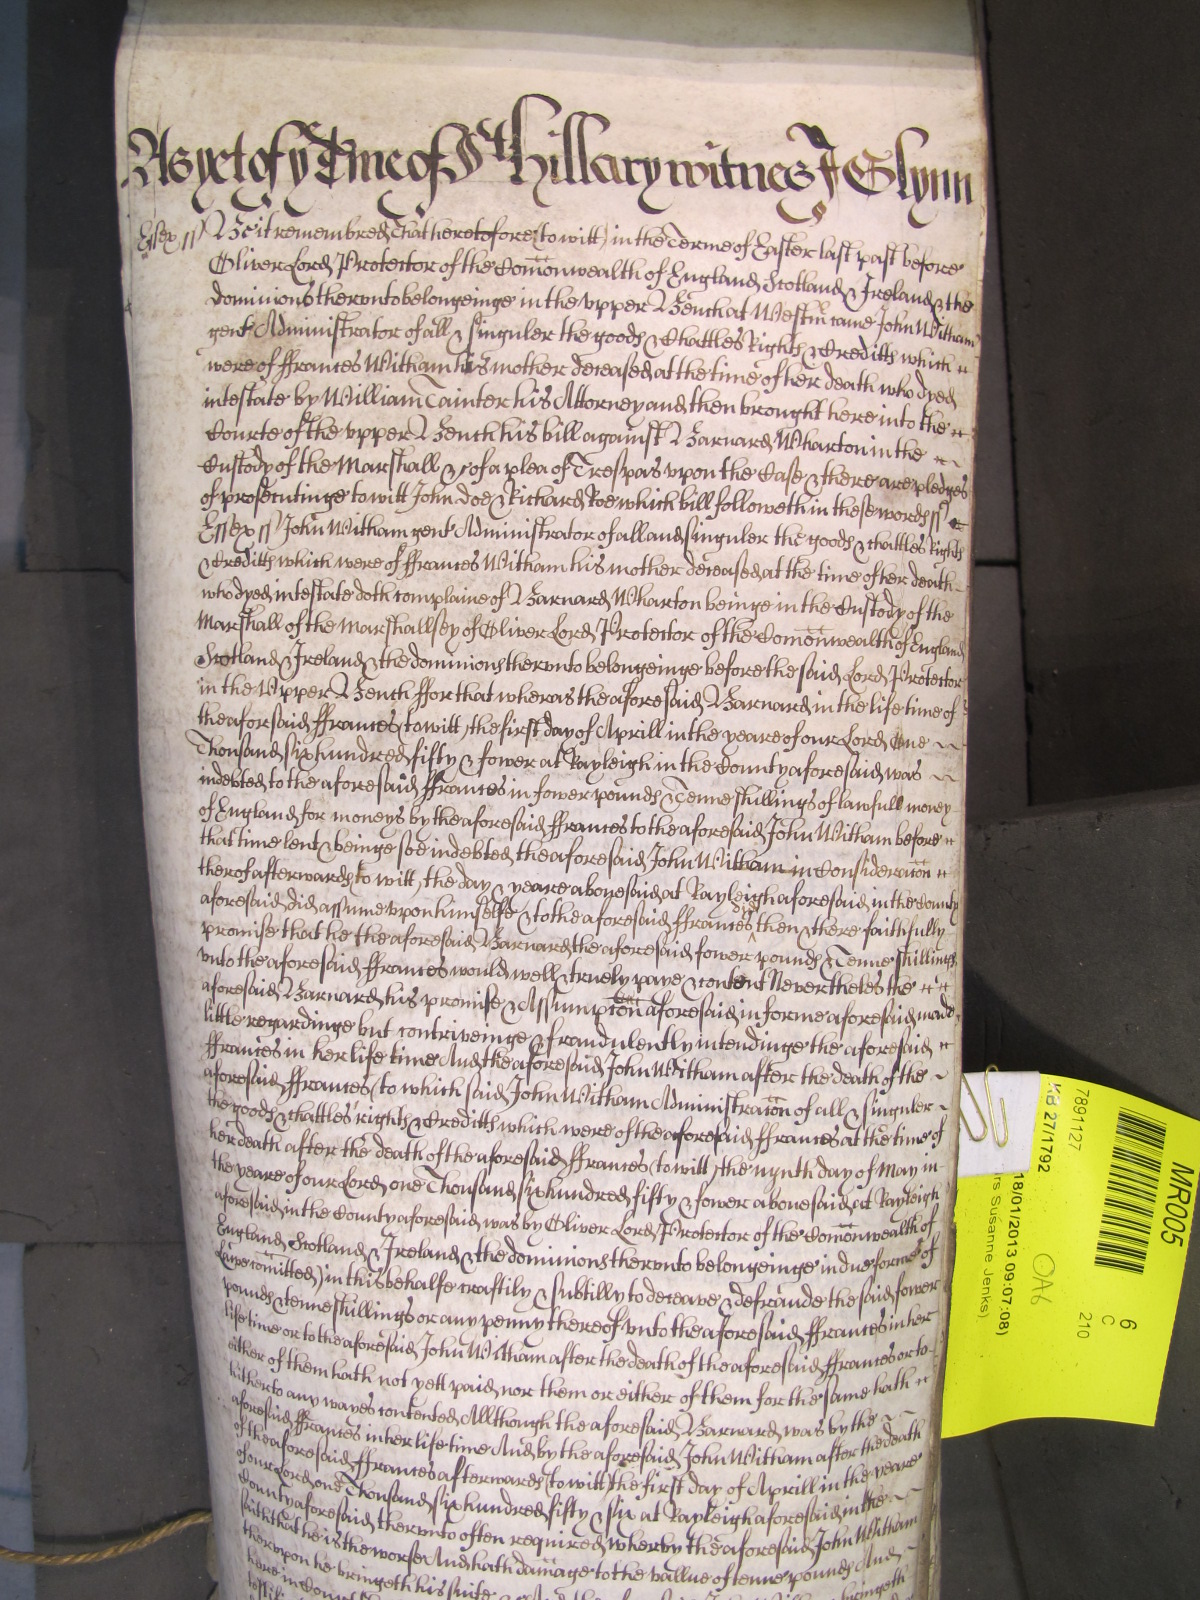 As yet of ye Tme of St Hillary witnes J Glynn
Essex ss Be it remembred That heretofore (to witt) in the Terme of Easter last past before
Oliver Lord Protector of the Comonwealth of England Scotland & Ireland & the
dominions therunto belongeinge in the upper Bench at Westm came John Witham
gent Administrator of all & singuler the goods & Chattles Rights & Creditts which
were of ffrances Witham his mother deceased at the time of her death who dyed
intestate by William Tainter his Attorney and then brought here into the
Courte of the upper Bench his bill against Barnard Wharton in the
Custody of the Marshall &c of a plea of Trespas upon the Case & there are pledges
of prosecutinge to witt John Doe & Richard Roe which bill followeth in these words ss
Essex ss John Witham gent Administrator of all and singuler the goods & chattles Rights
& Creditts which were of ffrances Witham his mother deceased at the time of her death
who dyed intestate doth complaine of Barnard Wharton beinge in the Custody of the
Marshall of the Marshallsey of Oliver Lord Protector of the Comonwealth of England
Scotland & Ireland & the dominions therunto belongeinge before the said Lord Protector
in the Upper Bench ffor that wheras the aforesaid Barnard in the life time of
the aforesaid ffrances to witt, the first day of Aprill in the yeare of our Lord One
Thousand six hundred fifty & fower at Rayleigh in the County aforesaid was
indebted to the aforesaid ffrances in fower pounds & Tenne shillings of lawfull money
of England for moneys by the aforesaid ffrances to the aforesaid John Witham before
that time lent & beinge soe indebted the aforesaid John Witham in Consideracon
therof afterwards to witt, the day & yeare abovesaid at Rayleigh aforesaid in the County
aforesaid did assume upon himselfe & to the aforesaid ffrances did then & there faithfully
promise that he the aforesaid Barnard the aforesaid fower pounds & Tenne shillings
unto the aforesaid ffrances would well & truely paye & content Nevertheles the
aforesaid Barnard his promise & Assumpcon aforesaid in forme aforesaid made
little regardinge but contriveinge & fraudulently intendinge the aforesaid
ffrances in her life time And the aforesaid John Witham after the death of the
aforesaid ffrances (to which said John Witham Administracon of all & singuler
the goods & chattles rights & Creditts which were of the aforesaid ffrances at the time of
her death after the death of the aforesaid ffrances (to witt, the nynth day of May in
the yeare of our Lord one Thousand six hundred fifty & fower abovesaid at Rayleigh
aforesaid in the County aforesaid was by Oliver Lord Protector of the Comonwealth of
England Scotland & Ireland & the dominions therunto belongeinge in due forme of
Lawe comitted) in this behalfe craftily & subtilly to deceave & defraude the said fower
pounds & tenne shillings or any penny thereof unto the aforesaid ffrances in her
life time or to the aforesaid John Witham after the death of the aforesaid ffrances or to
either of them hath not yett paid nor them or either of them for the same hath
hitherto any wayes contented Allthough the aforesaid Barnard was by the
aforesaid ffrances in her life time And by the aforesaid John Witham after the death
of the aforesaid ffrances afterwards (to witt) the first day of Aprill in the yeare
of our Lord one Thousand six hundred fifty & six at Rayleigh aforesaid in the
County aforesaid therunto often required wherby the aforesaid John Witham
saith that he is the worse And hath damage to the vallue of tenne pounds And
therupon he bringeth his suite
KB 27/1792
7691127
18/01/2013 09:07:08)
rs Susanne Jenks)
MR005
6
C
210
OA6